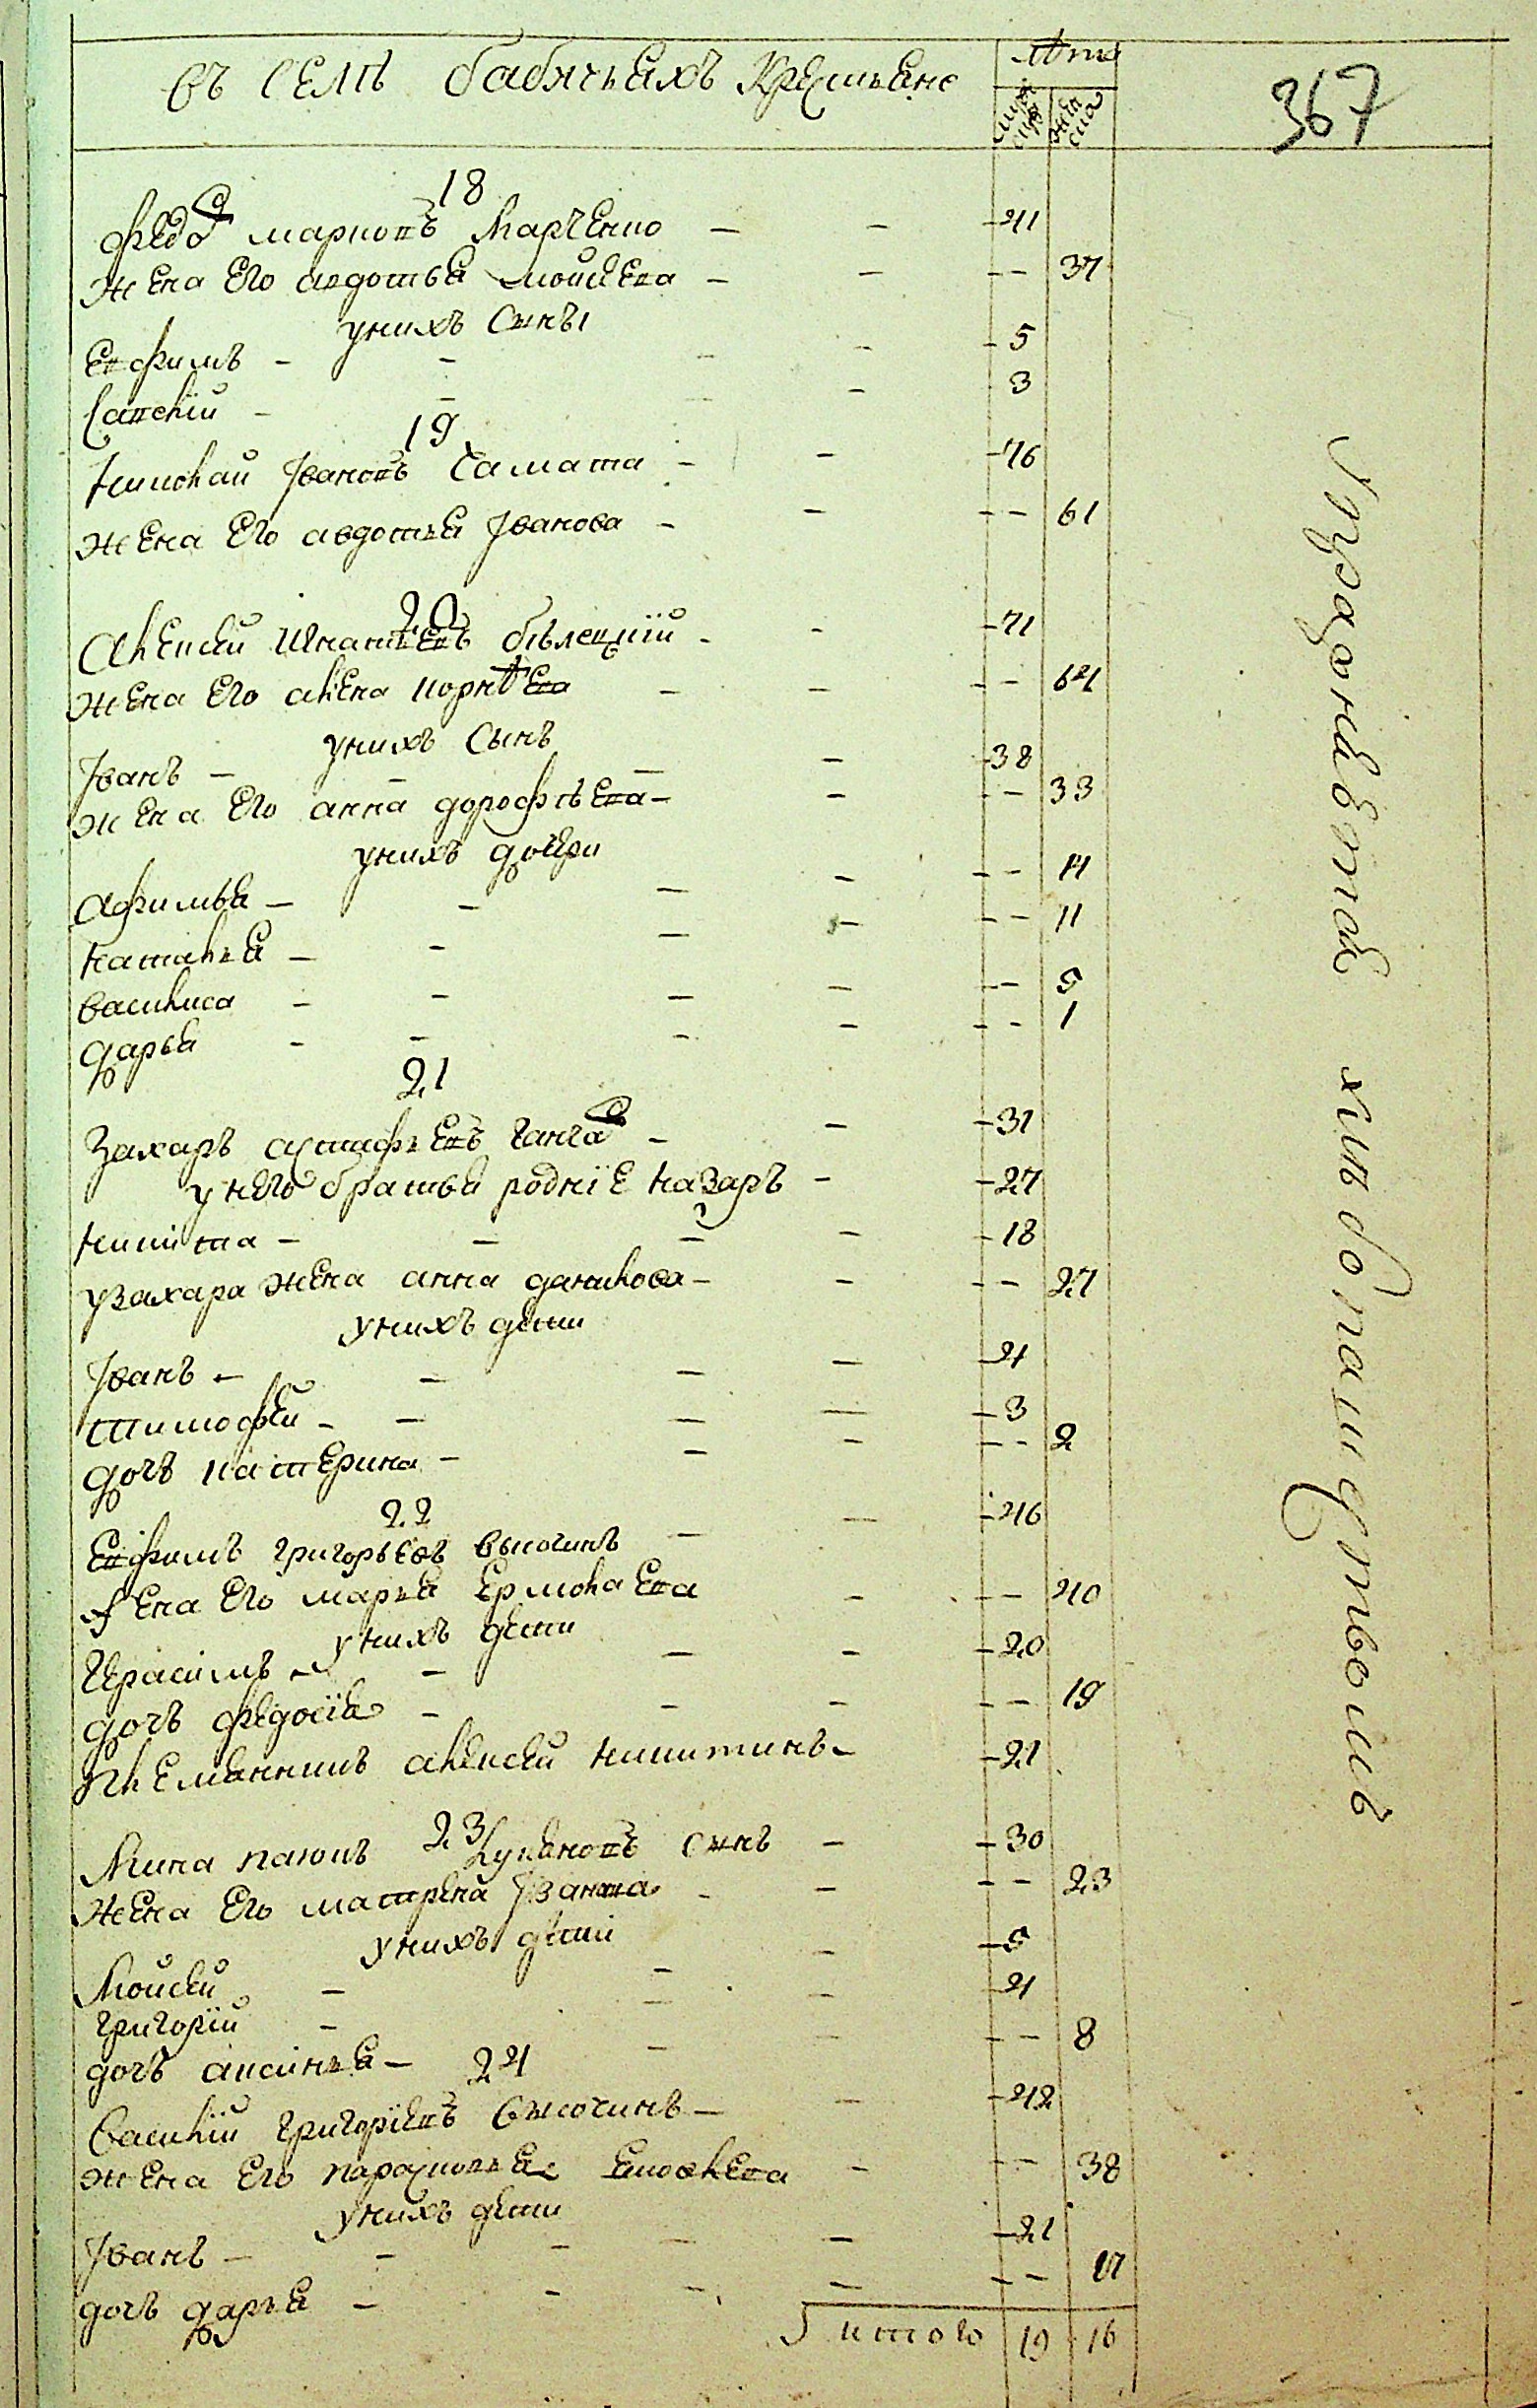 въ селѣ бабячьихъ крестьянъ лѣта
мужеска женска
367
18
Федоръ марковъ Марченко - - -41
жена его авдотья моисеева - - -- 37
у нихъ сынъı
Ефимъ - - - - -5
Савелій - - - 3
19
Николай Івановъ Самата - - -76
жена его авдотья Іванова - - -- 61
20
Алексей Игнатьевъ бѣлецкій - - -71
жена его алена корнѣева - - -- 64
у нихъ сынъ
Іванъ - - - - -38
жена его анна дорофѣева - - -- 33
у нихъ дочери
Афимья - - - - -- 14
Наталья - - - - -- 11
Василиса - - - - -- 5
Дарья - - - - -- 1
21
Захаръ астафьевъ - - -31
у него братья родніе Назаръ - -27
Никита - - - - -18
у Захара жена анна данилова - - -- 27
у нихъ дети
Іванъ - - - - -4
Тимофей - - - - -3
дочь катерина - - - -- 2
22
Ефимъ григорьевъ высочинъ - - -46
жена его марья ермолаева - -- 40
у нихъ дети
Герасимъ - - - - -20
дочь федосія - - - -- 19
Племянникъ алексей Никитинъ - -21
23
Мина Лукьяновъ сынъ - -30
жена его матрена Іванова - - -- 23
у нихъ дети
Мойсей - - - -5
Григорій - - - -4
дочь аксинья - - - -- 8
24
Василій григоріевъ высочинъ - - -42
жена его парасковья - -- 38
у нихъ дети
Іванъ - - - - - -21
дочь дарья - - - - -- 17
итого 19 16